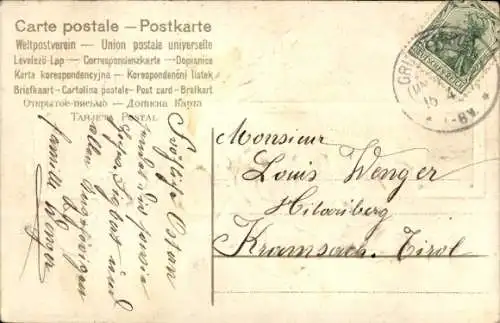 Carte postale — Postkarte
Weltpostverein — Union postale universelle
Levelező-Lap — Correspondenzkarte — Dopisnice
Karta korespondencyjna — Korespondenční lístek
Briefkaart - Cartolina postale - Post card - Brefkort
Открытое письмо — Дописна Карта
Tarjeta Postal
Fröhliche Ostern
und
allen Angehörigen
Familie Wenger
Monsieur
Louis Wenger
Hilariberg
Kramsach. Tirol
GRI
15 4
7-8V.
DEUTSCHES REICH